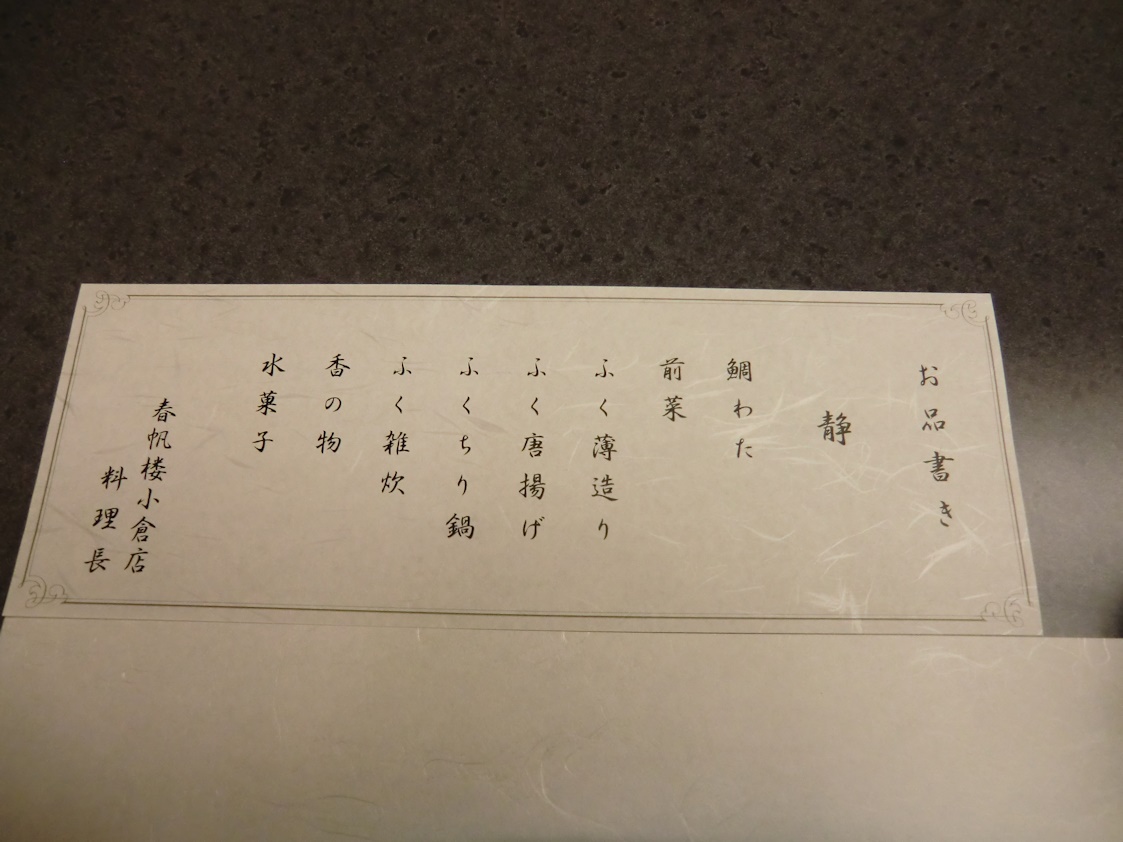 お品書き
静
鯛わた
前菜
ふく薄造り
ふく唐揚げ
ふくちり鍋
ふく雑炊
香の物
水菓子
春帆楼小倉店
料理長